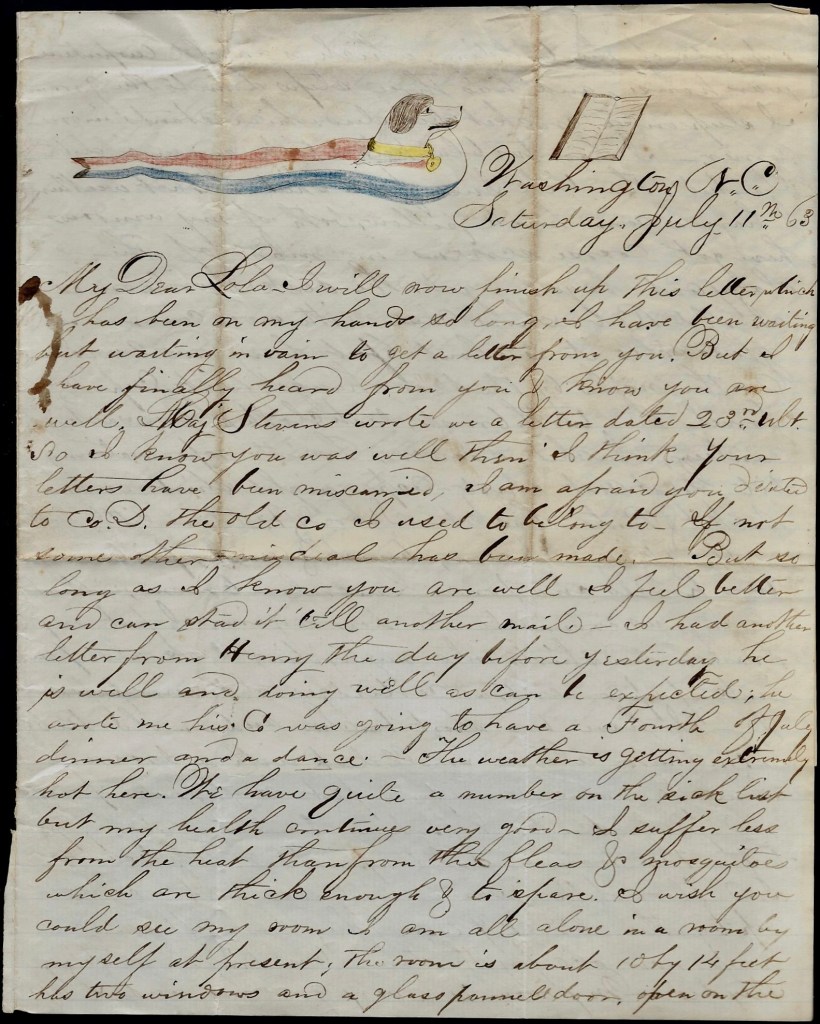 Washington, N.C.
Saturday, July 11th 63
My Dear Lola - I will now finish up this letter which
has been on my hands so long. I have been waiting
but waiting in vain to get a letter from you. But I
have finally heard from you & know you are
well. Maj Stevens wrote me a letter dated 23rd ult.
So I know you was well then I think your
letters have been miscarried, I am afraid you
to Co. D. the old co I used to belong to - If not
some other has been made. - But so
long as I know you are well I feel better
and can stad it till another mail - I had another
letter from Henry the day before yesterday he
is well and doing well as can be expected; he
wrote me his Co was going to have a Fourth of July
dinner and a dance. - The weather is getting extremely
hot here. We have quite a number on the sick list
but my health continues very good - I suffer less
from the heat than from the fleas & mosquitoes
which are thick enough & to spare. I wish you
could see my room I am all alone in a room by
myself at present; the room is about 10 by 14 feet
has two windows and a glass pannell door, open on the